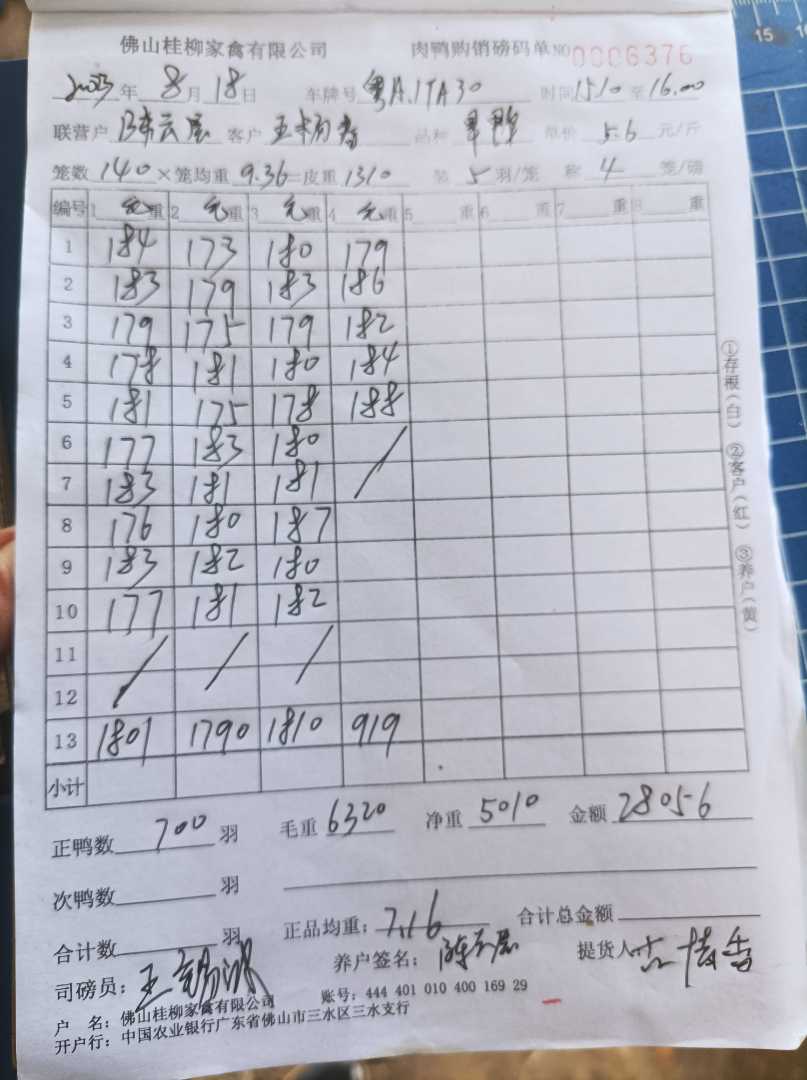 佛山桂柳家禽有限公司 肉鸭购销磅码单 NO 0006376
2023年 8月 18日 车牌号 粤A.1TA30 时间 1510 至 16.00
联营户 陈云层 客户 品种 单价 5.6 元/斤
笼数 140 ×笼均重 9.36 =皮重 1310 装 5 羽/笼 称 4 笼/磅
编号 1 毛重 2 毛重 3 毛重 4 毛重 5 重 6 重 7 重 8 重
1 184 173 180 179
2 183 179 183 186
3 179 175 179 182
4 178 181 180 184
5 181 175 178 188
6 177 183 180 /
7 183 181 181
8 176 180 187
9 183 182 180
10 177 181 182
11 / / /
12
13 1801 1790 1810 919
小计
正鸭数 700 羽 毛重 6320 净重 5010 金额 28056
次鸭数 羽
合计数 羽 正品均重: 7.16 合计总金额
司磅员: 养户签名: 陈云层 提货人
户 名: 佛山桂柳家禽有限公司 账号: 444 401 010 400 169 29
开户行: 中国农业银行广东省佛山市三水区三水支行
①存根(白) ②客户(红) ③养户(黄)
15